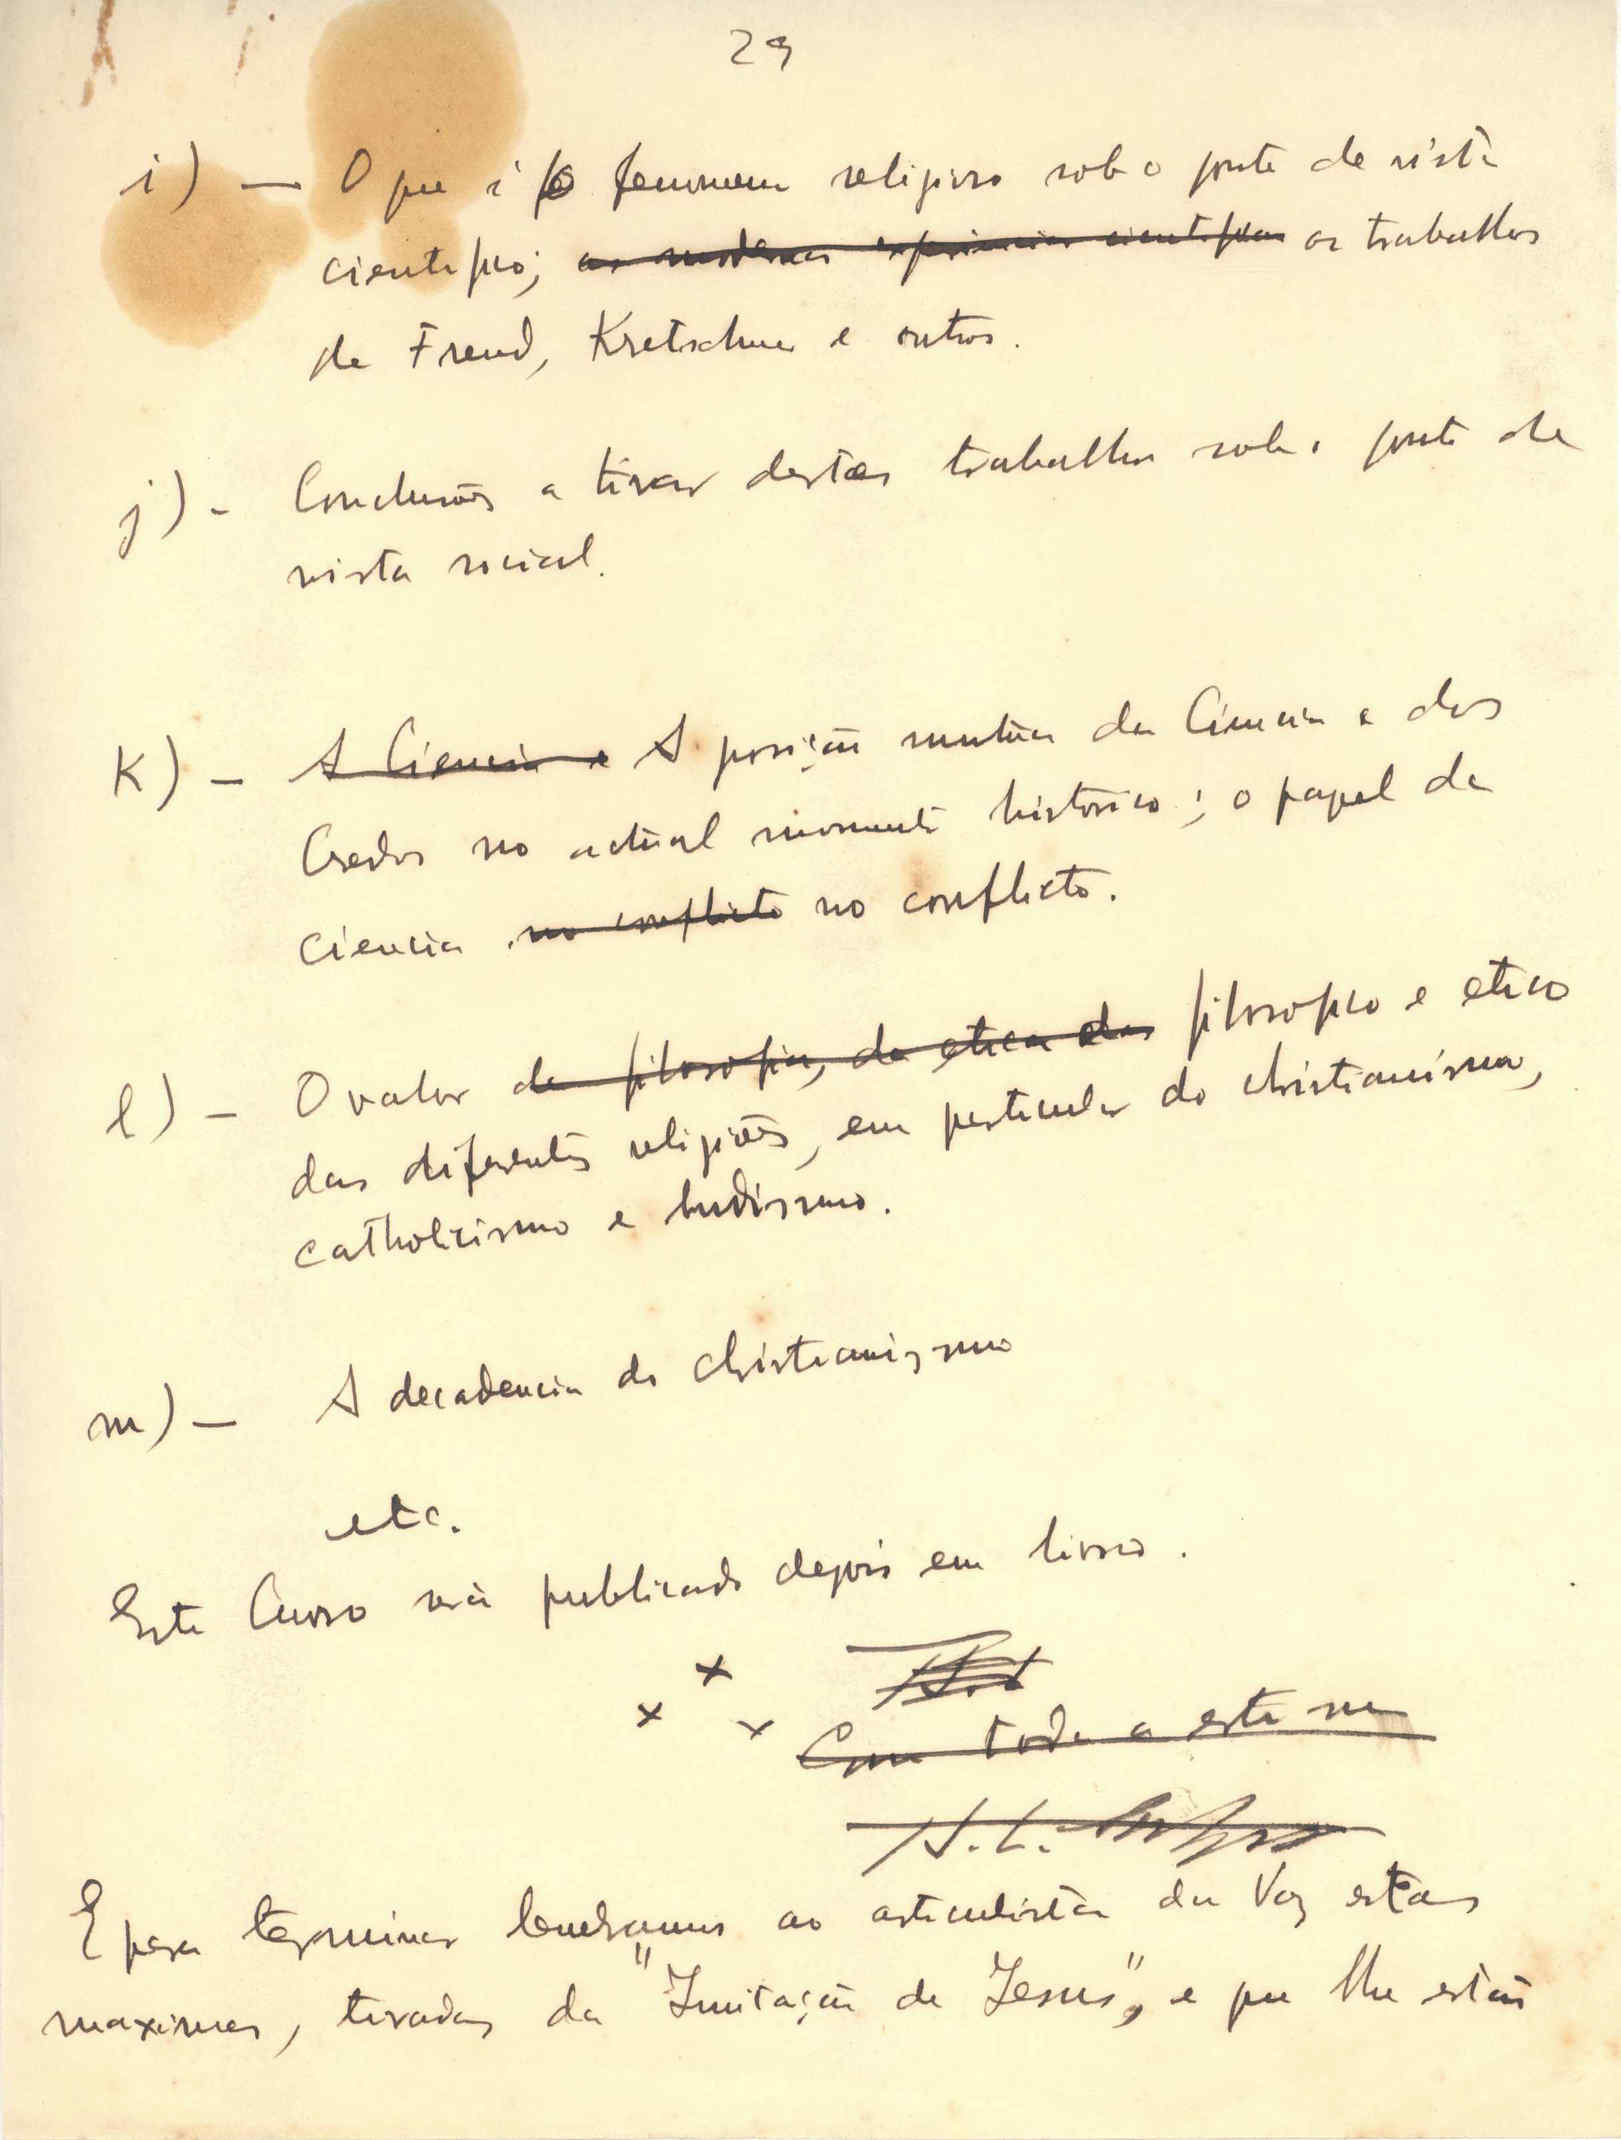 29
i) — O que é o fenomeno religioso sob o ponto de vista
cientifico; as modernas experiencias cientificas os trabalhos
de Freud, Kretschmer e outros.
j) - Conclusões a tirar destes trabalhos sob o ponto de
vista social.
K) — A Ciencia e A posição mutua da Ciencia e dos
Credos no actual momento historico; o papel da
ciencia no conflicto no conflicto.
l) — O valor da filosofia, da etica das filosofico e etico
das diferentes religiões, em particular do christianismo,
catholicismo e budismo.
m) — A decadencia do christianismo
etc.
Este Curso será publicado depois em livro.
x
x x
Com toda a este
A. L.
E para terminar lembramos ao articulista da Voz estas
maximas, tiradas da "Imitação de Jesus", e que lhe estão